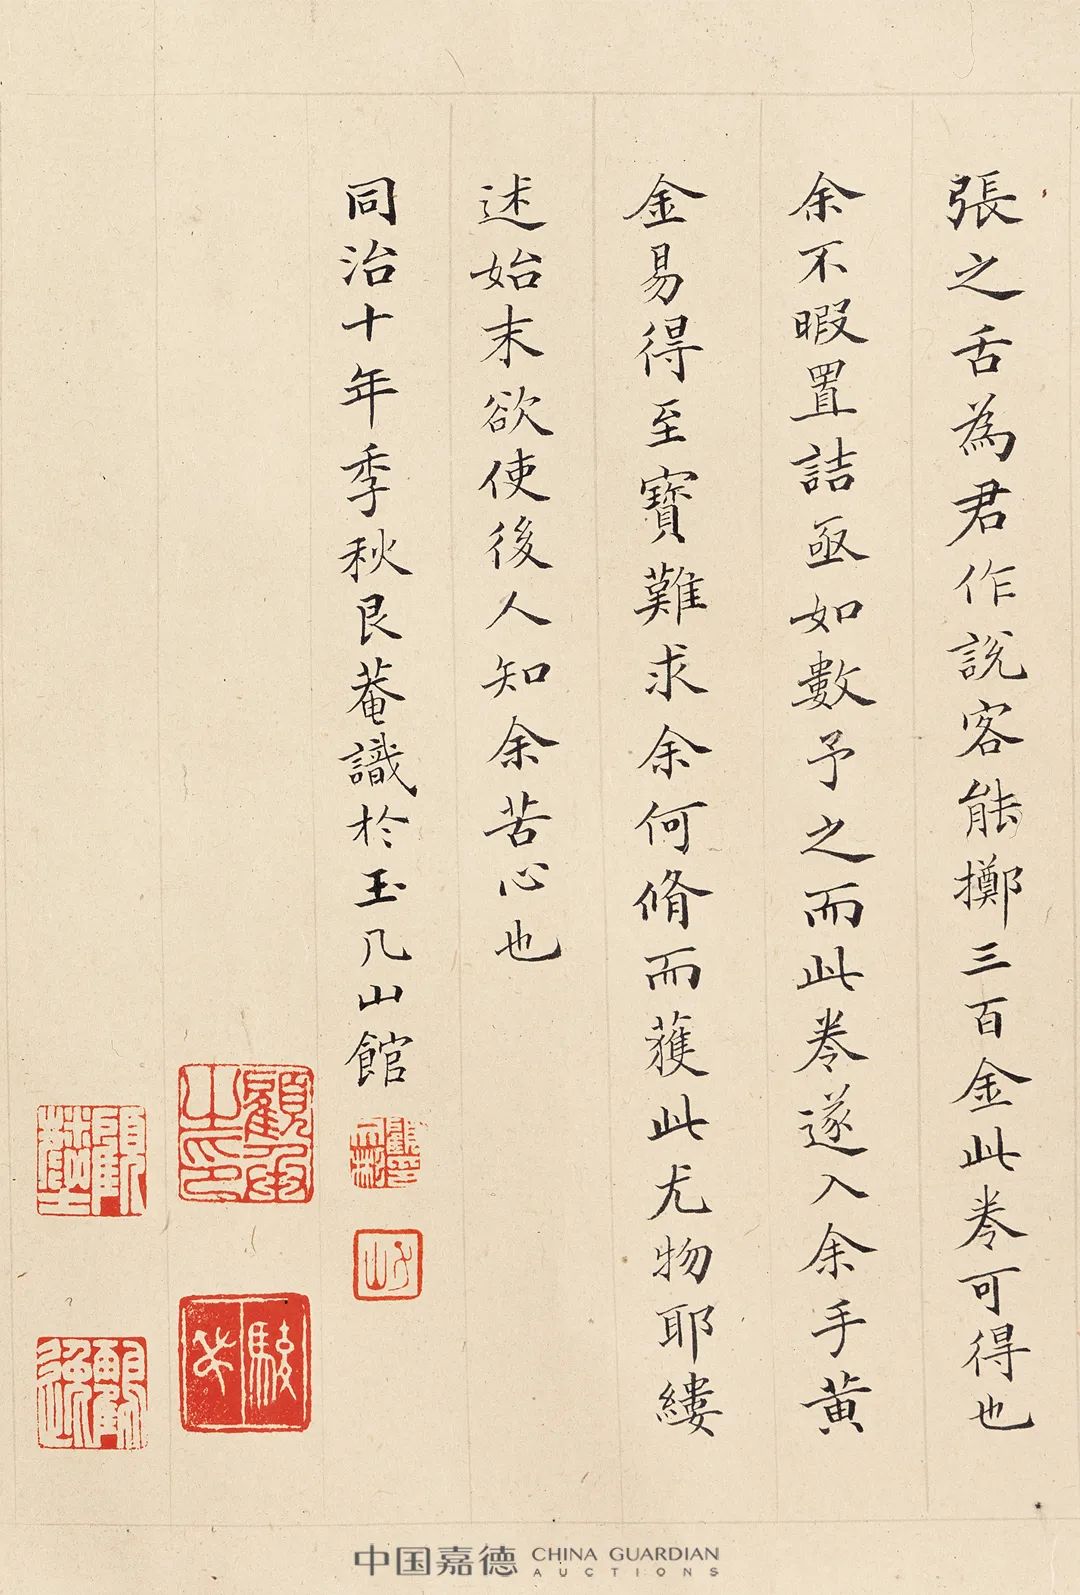 張之舌為君作說客能擲三百金此卷可得也
余不暇置詰亟如數予之而此卷遂入余手黄
金易得至寶難求余何脩而獲此尤物耶縷
述始末欲使後人知余苦心也
同治十年季秋艮菴識於玉几山館
中国嘉德 CHINA GUARDIAN
AUCTIONS